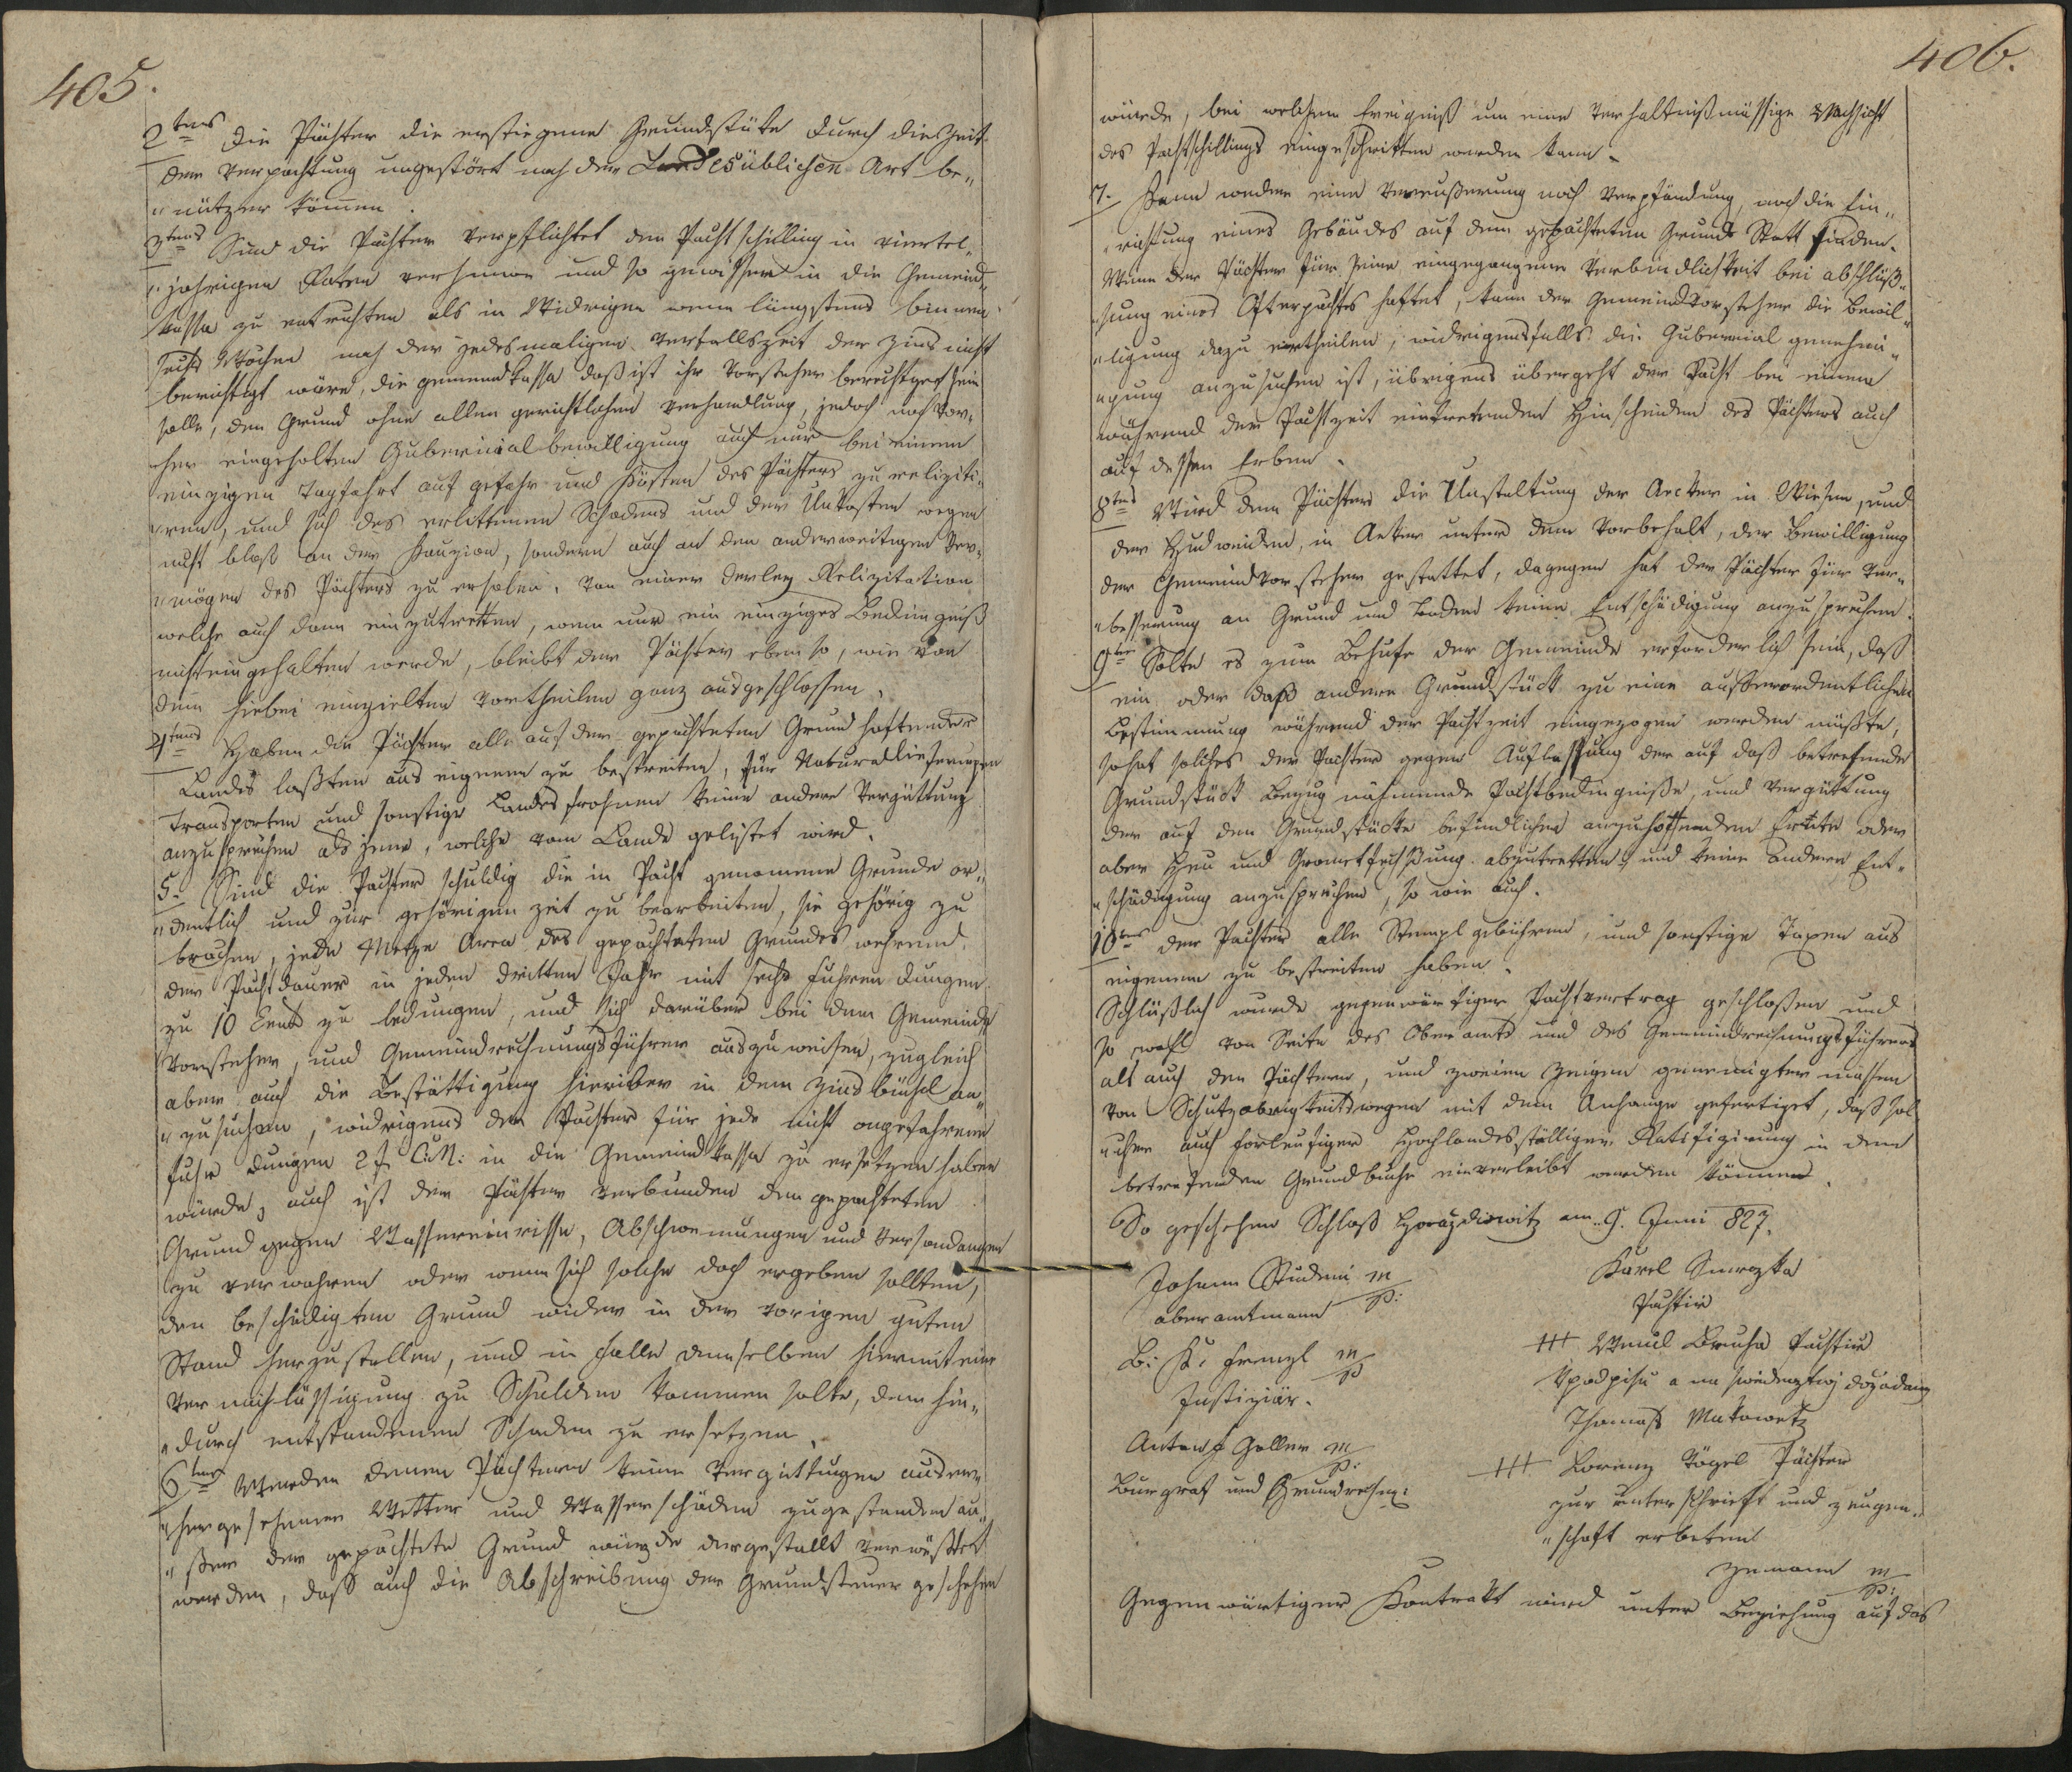 405.
2tens Die Pächter die erstiegene Grundstüke durch die Zeit
der Verpachtung ungestört nach der Landesüblichen Art be„
„nützen können.
3tens Sind die Pächter verpflichtet den Pachtschilling in viertel„
„jahrigen Raten und so gewisser in die Gemeind„
kassa zu entrichten als in Widrigen wenn längstens binnen
sechs Wochen nach der jedesmaligen Verfallszeit der Zins nicht
berichtigt wäre, die gemeindkassa daß ist ihr Vorsteher berechtiget sein
solle, den Grund ohne allen gerichtlichen Verhandlung, jedoch nach vor„
„her eingeholten Gubernialbewilligung auch nur bei einem
einzigen Tagfahrt auf gefahr und Kösten des Pächters zu reliziti„
„ren, und sich des erlittenen Schadens und der Unkosten wegen
nicht bloß an der Kauzion, sondern auch an den anderweitigen Ver„
„mögen des Pächters zu erholen. Von einer derley Relizitation
welche auch dann einzutretten, wenn nur ein einziges Bedingniß
nicht eingehalten werde, bleibt der Pächter eben so, wie von
dem hiebei einzielten Vortheilen ganz ausgeschlossen.
4tens Haben die Pächter alle auf der gepachteten Grund haftender
Landes laßten aus eigenem zu bestreiten, für Naturallieferungen
Transporten und sonstige Landesfrohnen keine andere Vergüttung
anzusprechen als jene, welche vom Lande gelistet wird.
5. Sind die Pachter schuldig die in Pacht genomene Grunde or„
„dentlich und zur gehörigen Zeit zu bearbeiten, sie gehörig zu
brachen, jede Metze Area des gepachteten Grundes wehrend
der Pachtdauer in jeden dritten Jahr mit sechs Fuhren Dungen
zu 10 Cent zu bedungen, und sich darüber bei dem Gemeinde
Vorsteher, und Gemeindrechnungsführer auszuweisen, zugleich
aber auch die Bestättigung hierüber in dem Zinsbüchel an„
„zusuchen, widrigens der Pachter für jede nicht angefahrene
Fuhr Dungen 2 f C.M: in die Gemeindkassa zu ersetzen haben
würde, auch ist der Pächter verbunden den gepachteten
Grund gegen Wassereinrisse, Abschwemungen und Versandungen
zu verwahren oder wenn sich solche doch ergeben sollten,
den beschädigten Grund wider in der vorigen guten
Stand herzustellen, und in Falle demselben hiemit eine
Vernachlässigung zu Schulden kommen solte, dem hie„
„durch entstandenen Schaden zu ersetzen.
6tens Werden denen Pächtern keine Vergüttungen
Wetter und Wasserschäden zugestanden au„
„ßer der gepachtete Grund würde dergestallt verwüßtet
werden, daß auch die Abschreibung der Grundsteuer geschehen
406.
würde, bei welchem Ereigniß um eine Verhaltnißmässige Nachsicht
des Pachtschillings eingeschritten werden kann.
7. Kann weder eine Vereußerung noch Verpfändung, noch die Ein„
„richtung eines Gebäudes auf dem gepachteten Grunde Statt finden.
Wenn der Pächter für seine eingegangene Verbindlichkeit bei abschlüß„
„sung eines Afterpachtes haftet, kann der Gemeindvorsteher die Bewil„
„ligung dazu ertheilen, widrigensfalls die Gubernial genehmi„
„gung anzusuchen ist, übrigens übergeht der Pacht bei einem
während der Pachtzeit eintretenden Hinscheiden des Pächters auch
auf dessen Erben.
8tens Wird dem Pächter die Umstaltung der Aecker in Wiesen, und
der Hudweiden, in Aeker unter dem Vorbehalt, der Bewilligung
der Gemeindvorsteher gestattet, dagegen hat der Pächter für Ver„
„besserung an Grund und Boden keine Entschädigung anzusprechen.
9te Solte es zum Behufe der Gemeinde erforderlich sein, daß
ein oder daß andere Grundstück zu eine ausserordentlichen
Bestimmung während der Pachtzeit eingezogen werden müßte,
so hat solches der Pachter gegen Auflassung der auf daß betrefende
Grundstück Bezug nähmende Pachtbedingniße, und Vergüttung
der auf den Grundstücke befindlichen anzuhoffenden Erndte oder
aber Heu und Grometfechßung abzutretten, und keine andere Ent„
„schädigung anzusprechen, so wie auch.
10tens der Pachter alle Stempl gebühren, und sonstige Taxen aus
eigenem zu bestreiten haben.
Schlüßlich wurde gegenwärtiger Pachtvertrag geschloßen und
so wohl von Seite des Oberamts und des Gemeindrechnungsführers
als auch den Pächtern, und zweien Zeigen genemigter massen
von Schutzobrigkeitswegen mit dem Anhange gefertiget, daß sol„
„cher auch vorleufiger Hochlandesställigen Ratifizirung in dem
betrefenden Grundbuche einverleibt werden können.
So geschehen Schloß Horazdiowitz am 9. Juni 827.
Johann Studeni m/p:
oberamtmann
B: K: Frenzl m/p
Justiziär.
Anton F Haller m/p:
Burgraf und Grundrechn:
Karel Smrczka
Pachtirz
+++ Wenzl Bruha Pachtirz
Kpodpisu a na swiedecztwj dozadany
Thomass Makowetz
+++ Lorenz Vögel Pächter
zur unterschrieft und zeugen„
„schaft erbeten
Zemann m/p:
Gegenwärtiger Kontrakt wird unter Beziehung auf das